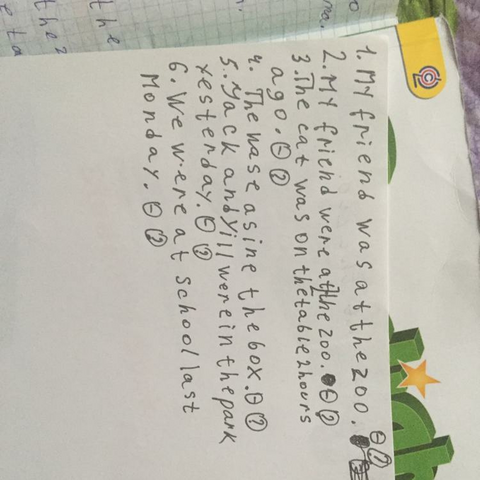 1. MY friend was at the zoo. ⊖ (?)
2. MY friend were at the zoo. ⊖ (?)
3. The cat was on the table 2 hours
ago. ⊖ (?)
4. The the box. ⊖ (?)
5. Yack and Yill were in the park
yesterday. ⊖ (?)
6. We were at school last
Monday. ⊖ (?)